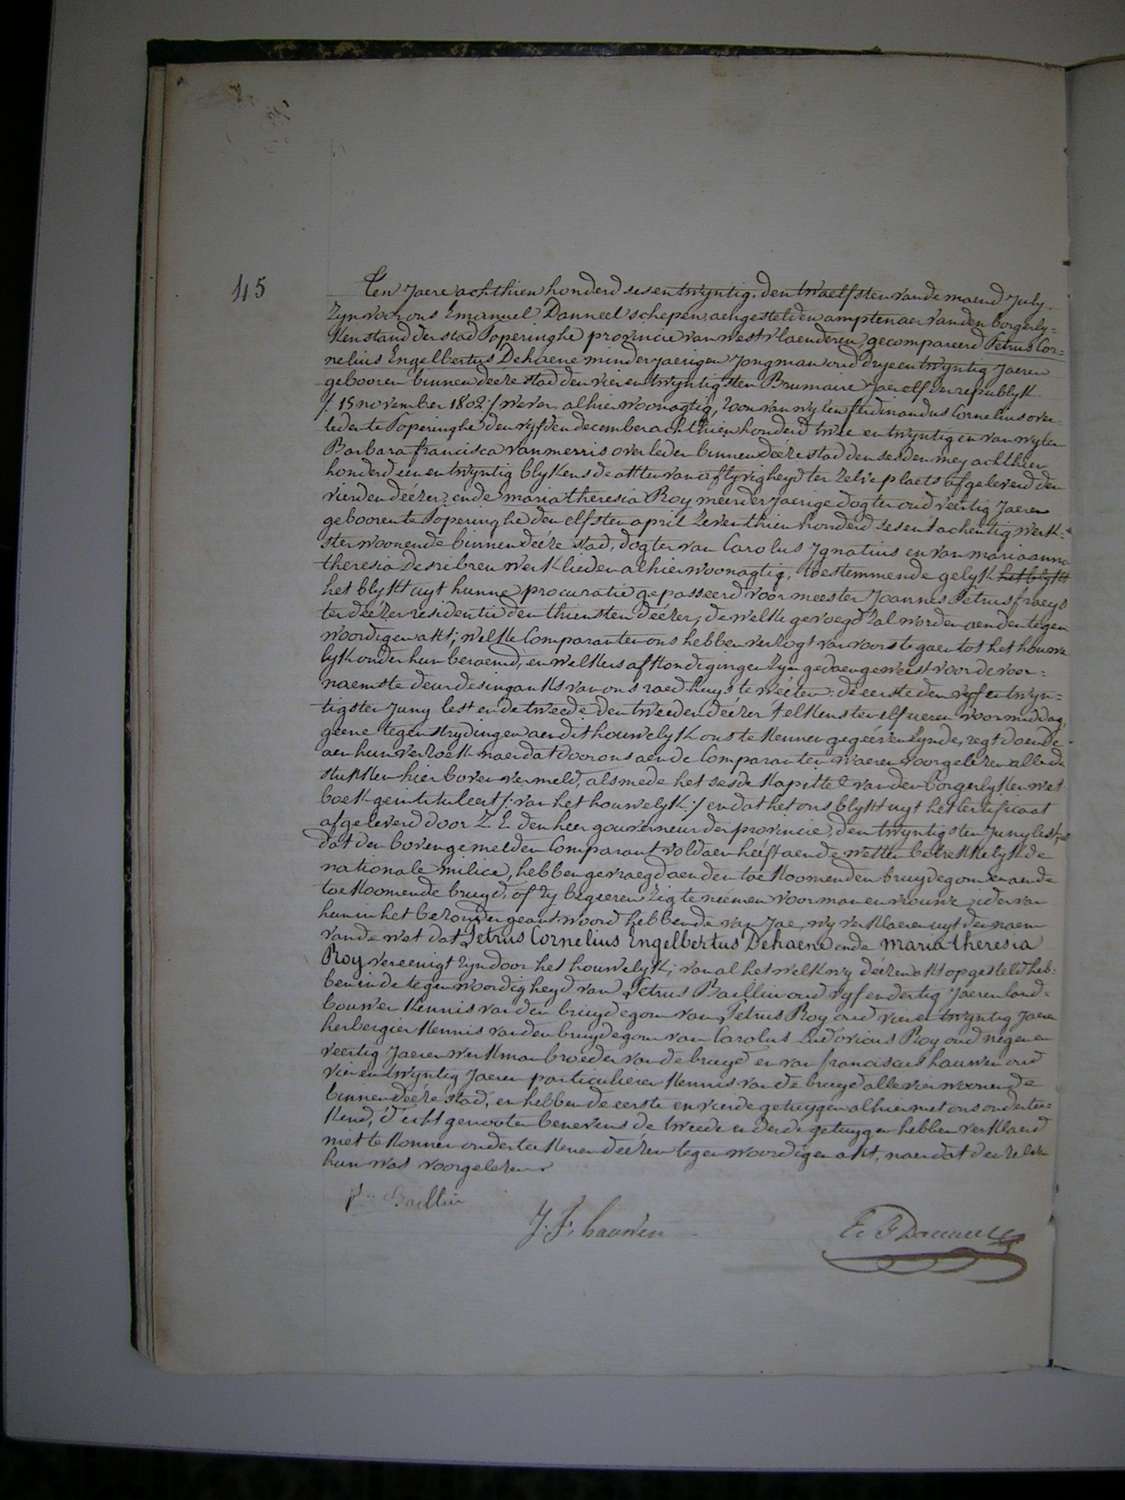 45
Ten Jaere achthien honderd sesentwyntig, den twaelfsten van de maend July
Zyn voor ons Emanuel Danneel schepen, aengestelden amptenaer van den borgerly-
ken stand der stad Poperinghe provincie van westvlaenderen, gecompareerd Petrus Cor-
nelius Engelbertus Dehaene minderjaerigen Jongman oud dryentwyntig Jaeren
gebooren binnen deeze stad den vierentwyntigsten Brumaire jaer elf der republyk
/ 15 november 1802 / wever alhier woonagtig, zoon van wylen ferdinandus Cornelius over-
leden te Poperinghe den vyfden december achthien honderd twee en twyntig en van wylen
Barbara francisca vanmerris overleden binnen deéze stad den sesden mey achthien
honderd een en twyntig blykens de akten van aflyvigheyd ter zelve plaets afgeleverd den
vierden deézer; ende maria theresia Roy meerderjaerige dogter oud veertig Jaeren
gebooren te Poperinghe den elfsten april zeventhien honderd sesentachentig werk-
ster woonende binnen deéze stad, dogter van Carolus Ignatius en van maria anna
theresia Desribreu werklieden alhier woonagtig, toestemmende gelyk het blykt
het blykt uyt hunne procuratie gepasseerd voor meester Joannes Petrus fraeys
ter deézer residentie den thiensten deézer, de welke gevoegd zal worden aen den tegen-
woordigen akt; welke Comparanten ons hebben verzogt van voorts te gaen tot het houwe-
lyk onder hun beraemd, en welkers afkondigingen zyn gedaen geweest voor de voor-
naemste deur des ingankx van ons raedhuys te weéten: de eerste den vyfentwyn-
tigsten Juny lest en de tweede den tweeden deézer telkens ten elf ueren voormiddag,
geene tegenstrydingen aen dit houwelyk ons te kennen gegeéven zynde, regt doende
aen hun verzoek naer dat door ons aen de Comparanten waeren voorgelezen alle de
stukken hier boven vermeld, alsmede het sesde kapittel van den borgerlyken wet-
boek geintituleert /: van het houwelyk :/ en dat het ons blykt uyt het certificaat
afgeleverd door Z. E. den heer gouverneur der provincie, den twyntigsten Juny lest,
dat den bovengemelden Comparant voldaen heéft aen de wetten betrekkelyk de
nationale milice, hebben gevraegd aen den toekoomenden bruydegom en aen de
toekoomende bruyd, of zy begeeren zig te neémen voor man en vrouwe; ider van
hun in het bezonder geantwoord hebbende van Jae, wy verklaeren uyt den naem
van de wet dat Petrus Cornelius Engelbertus Dehaene ende maria theresia
Roy vereenigt zyn door het houwelyk; van al het welk wy deézen akt opgesteld heb-
ben in de tegenwoordigheyd van Petrus Baellin oud vyfendertig Jaeren land-
bouwer kennis van den bruydegom van Petrus Roy oud vierentwyntig Jaeren
herbergier kennis van den bruydegom van Carolus Ludovicus Roy oud negen en
veertig Jaeren werkman broeder van de bruyd en van franciscus hauwen oud
vierentwyntig Jaeren particulieren kennis van de bruyd alle vier woonende
binnen deéze stad, en hebben de eerste en vierde getuygen alhier met ons onderteé-
kend, d'echtgenooten benevens de tweede en derde getuygen hebben verklaerd
niet te konnen onderteekenen deézen tegenwoordigen akt, naer dat deézelven
hun was voorgelezen.
Baellin
J. F. hauwen
E. F. Danneel